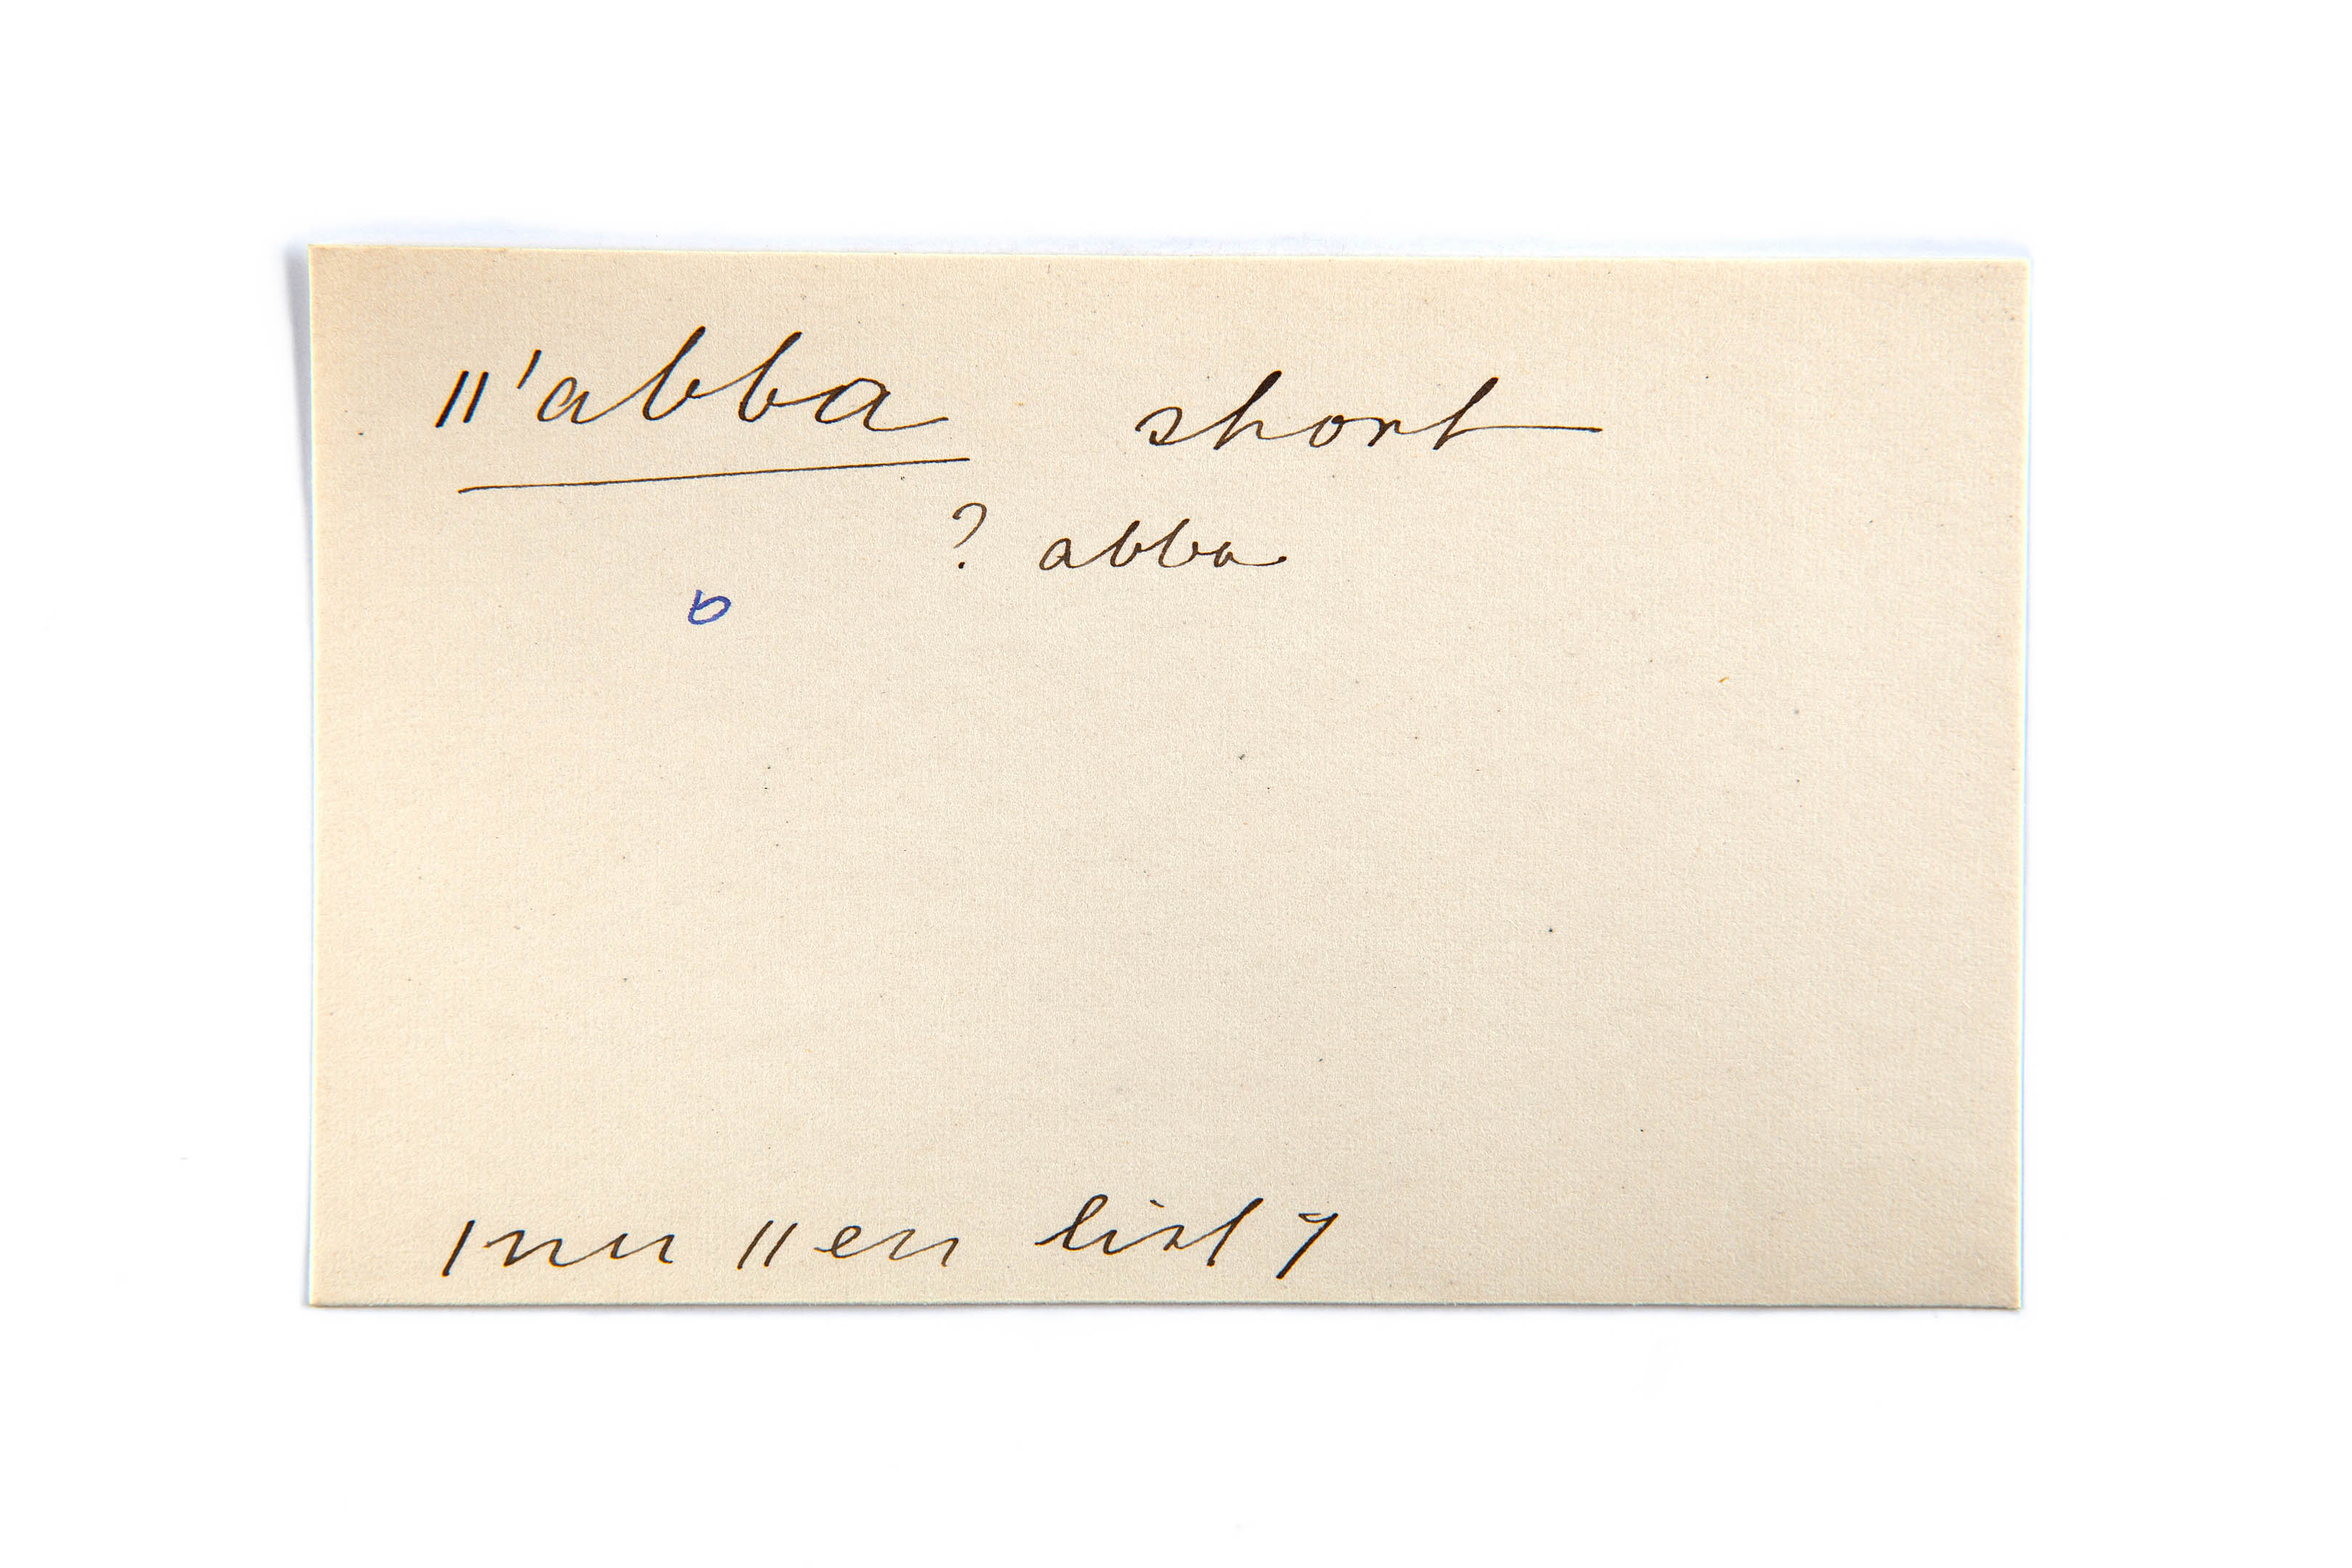 ||'abba short
? abba
b
|nu ||en list 7